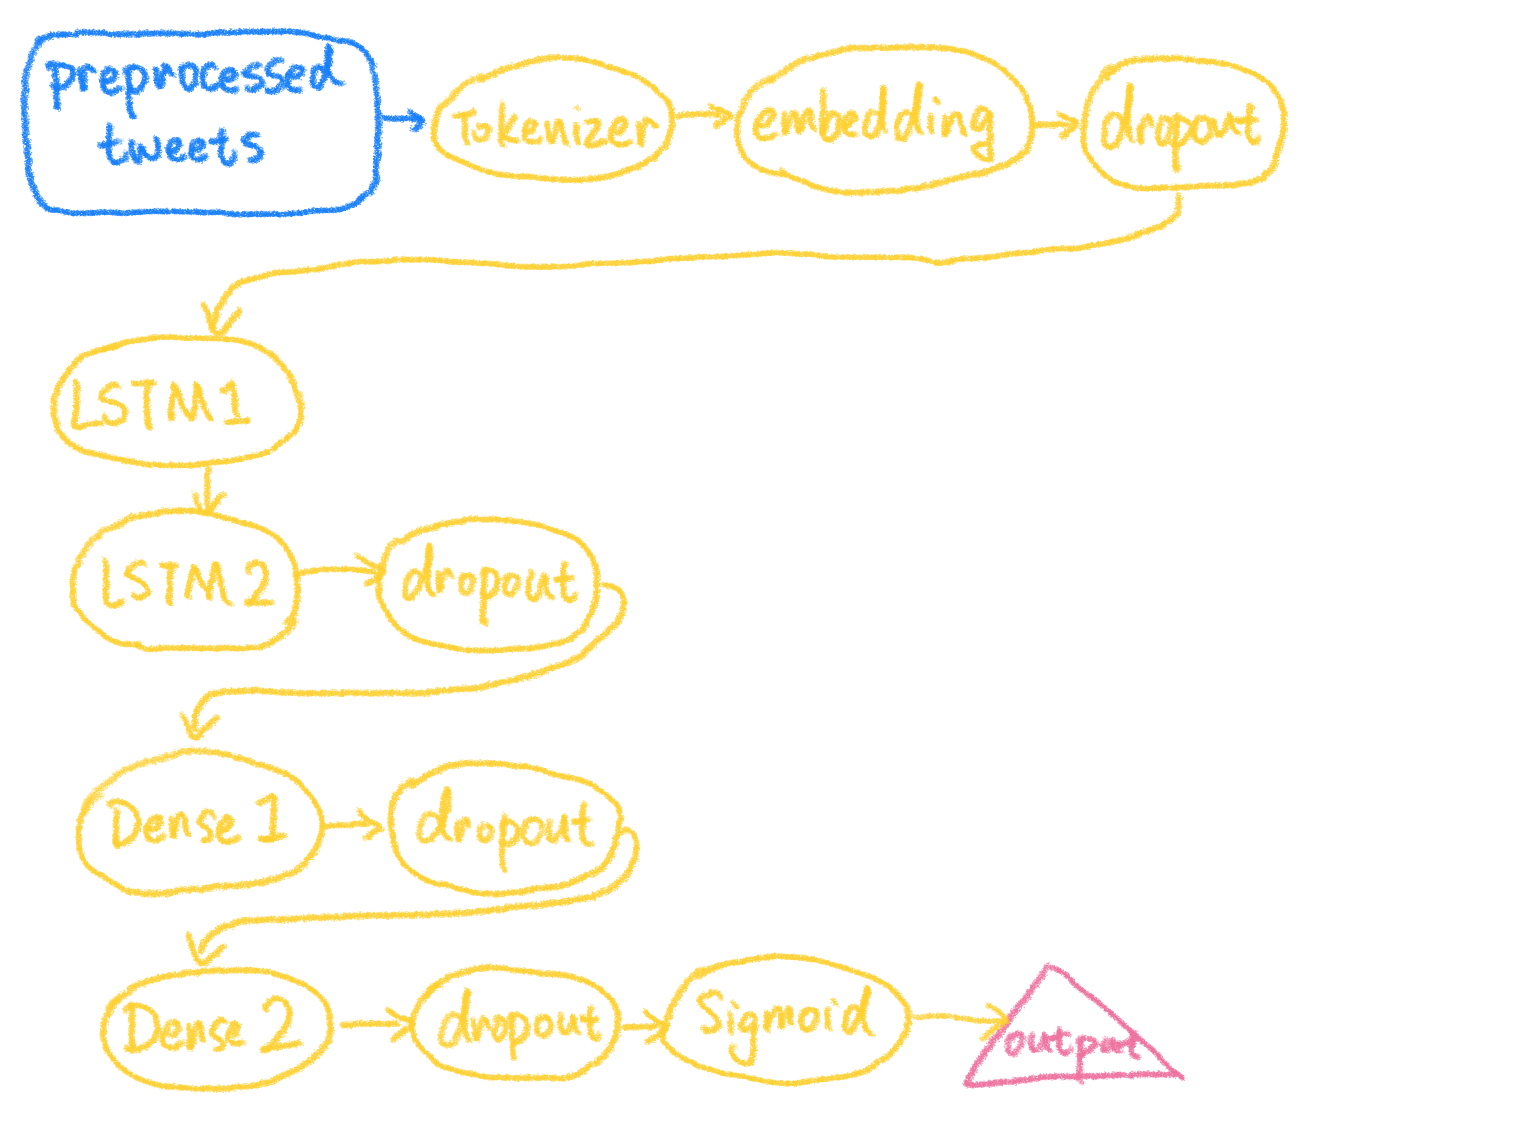 preprocessed
tweets
Tokenizer
embedding
dropout
LSTM 1
LSTM 2
dropout
Dense 1
dropout
Dense 2
dropout
Sigmoid
output